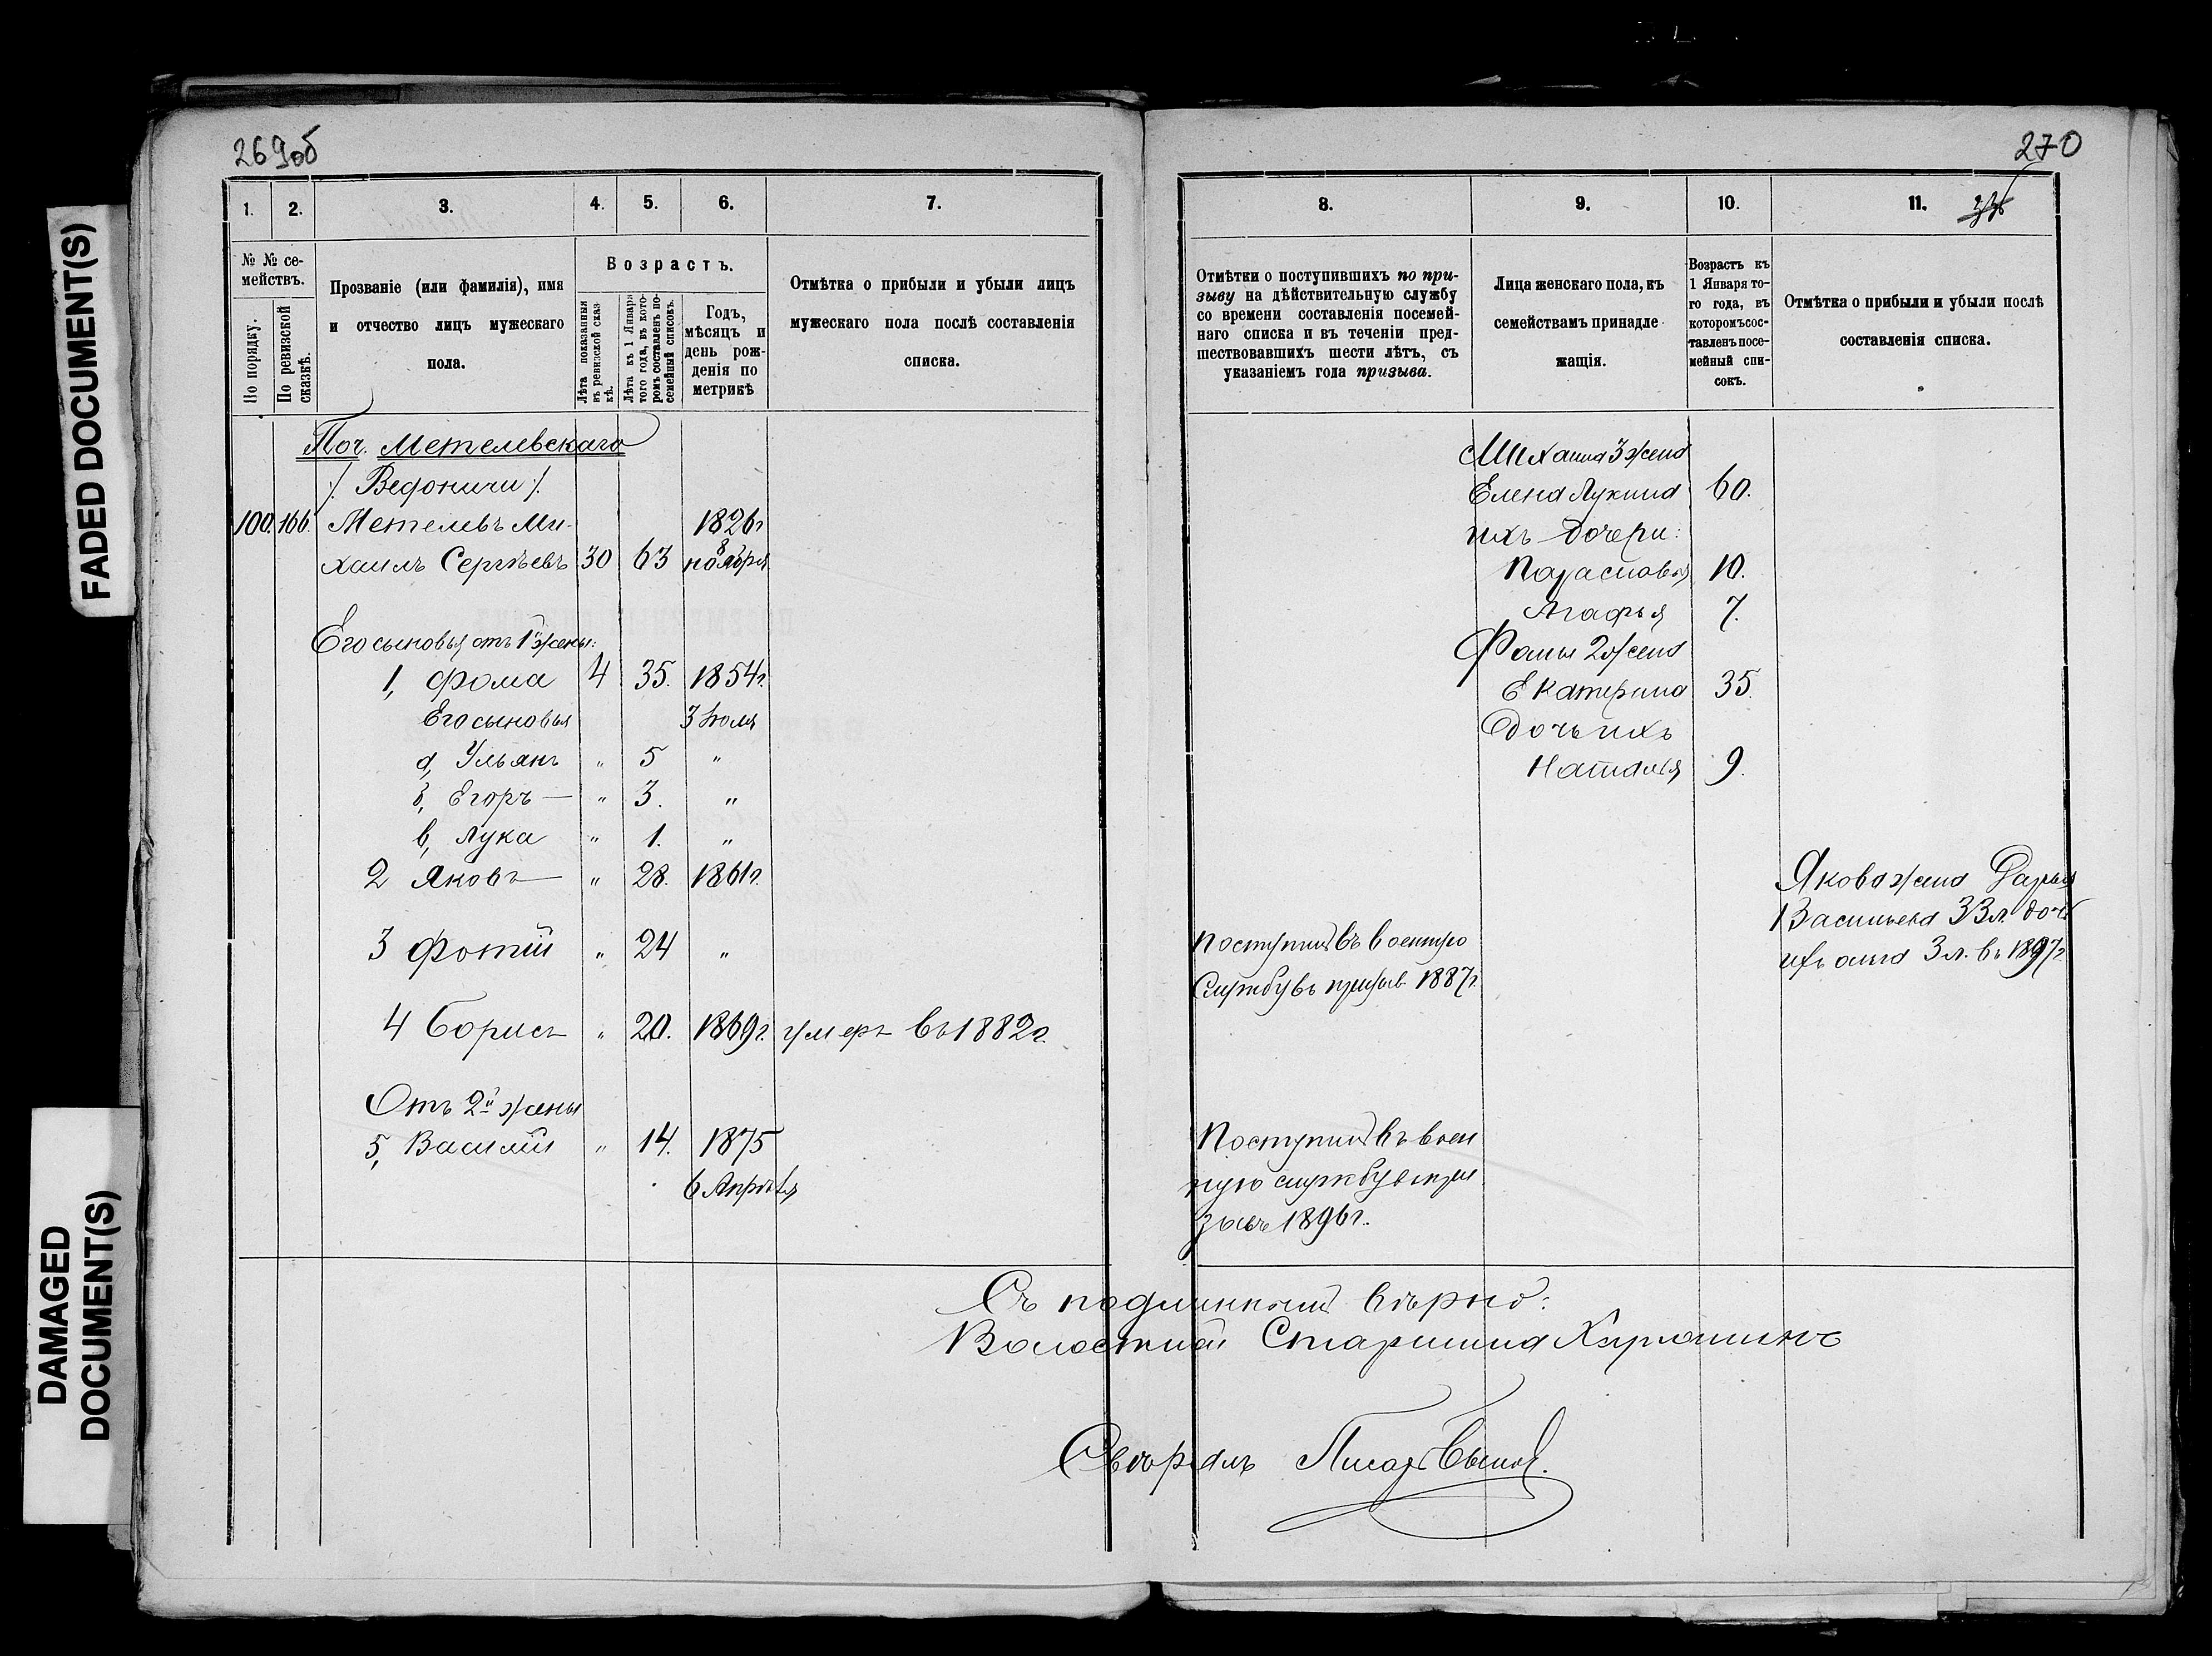 FADED DOCUMENT(S)
DAMAGED
DOCUMENT(S)
269об
1.
2.
3.
4.
5.
6.
7.
№ № се-
мействъ.
По порядку.
По ревизской
сказкѣ.
Прозваніе (или фамилія), имя
и отчество лицъ мужескаго
пола.
Возрастъ.
Лѣта показанныя
въ ревизской сказ-
кѣ.
Лѣта къ 1 Января
того года, въ кото-
ромъ составленъ по-
семейный списокъ.
Годъ,
мѣсяцъ и
день рож-
денія по
метрикѣ
Отмѣтка о прибыли и убыли лицъ
мужескаго пола послѣ составленія
списка.
Поч. Метелевскаго
/. Ведоничи /.
100. 166. Метелевъ Ми- 1826г
хаилъ Сергѣевъ 30 63 8 ноября
Его сыновья отъ 1й жены:
1, Фома 4 35. 1854г.
Его сыновья 3 Іюля
а, Ульянъ " 5 "
б, Егоръ — " 3. "
в, Лука " 1. "
2 Яковъ — " 28. 1861г.
3 Фотій " 24 "
4 Борисъ " 20. 1869г. умеръ въ 1882г.
Отъ 2й жены
5, Василій " 14. 1875
6 Апрѣля
270
8.
9.
10.
11.
Отмѣтки о поступившихъ по при-
зыву на дѣйствительную службу
со времени составленія посемей-
наго списка и въ теченіи пред-
шествовавшихъ шести лѣтъ, съ
указаніемъ года призыва.
Лица женскаго пола, къ
семействамъ принадле-
жащія.
Возрастъ къ
1 Января то-
го года, въ
которомъ сос-
тавленъ посе-
мейный спи-
сокъ.
Отмѣтка о прибыли и убыли послѣ
составленія списка.
Михаила 3 жена
Елена Лукина 60.
ихъ дочери:
Парасковья 10.
Агафья 7.
Фомы 2 жена
Екатерина 35.
Дочь ихъ
Наталья 9.
Якова жена Дарья
Васильева 33 л. дочь
ихъ 3 л. въ 1897г.
Поступилъ въ военную
службу въ призыв 1887г.
Поступилъ въ воен
ную службу въ при
зывъ 1896г.
Съ подлиннымъ вѣрно:
Волостной Старшина
Свѣрялъ Писарь